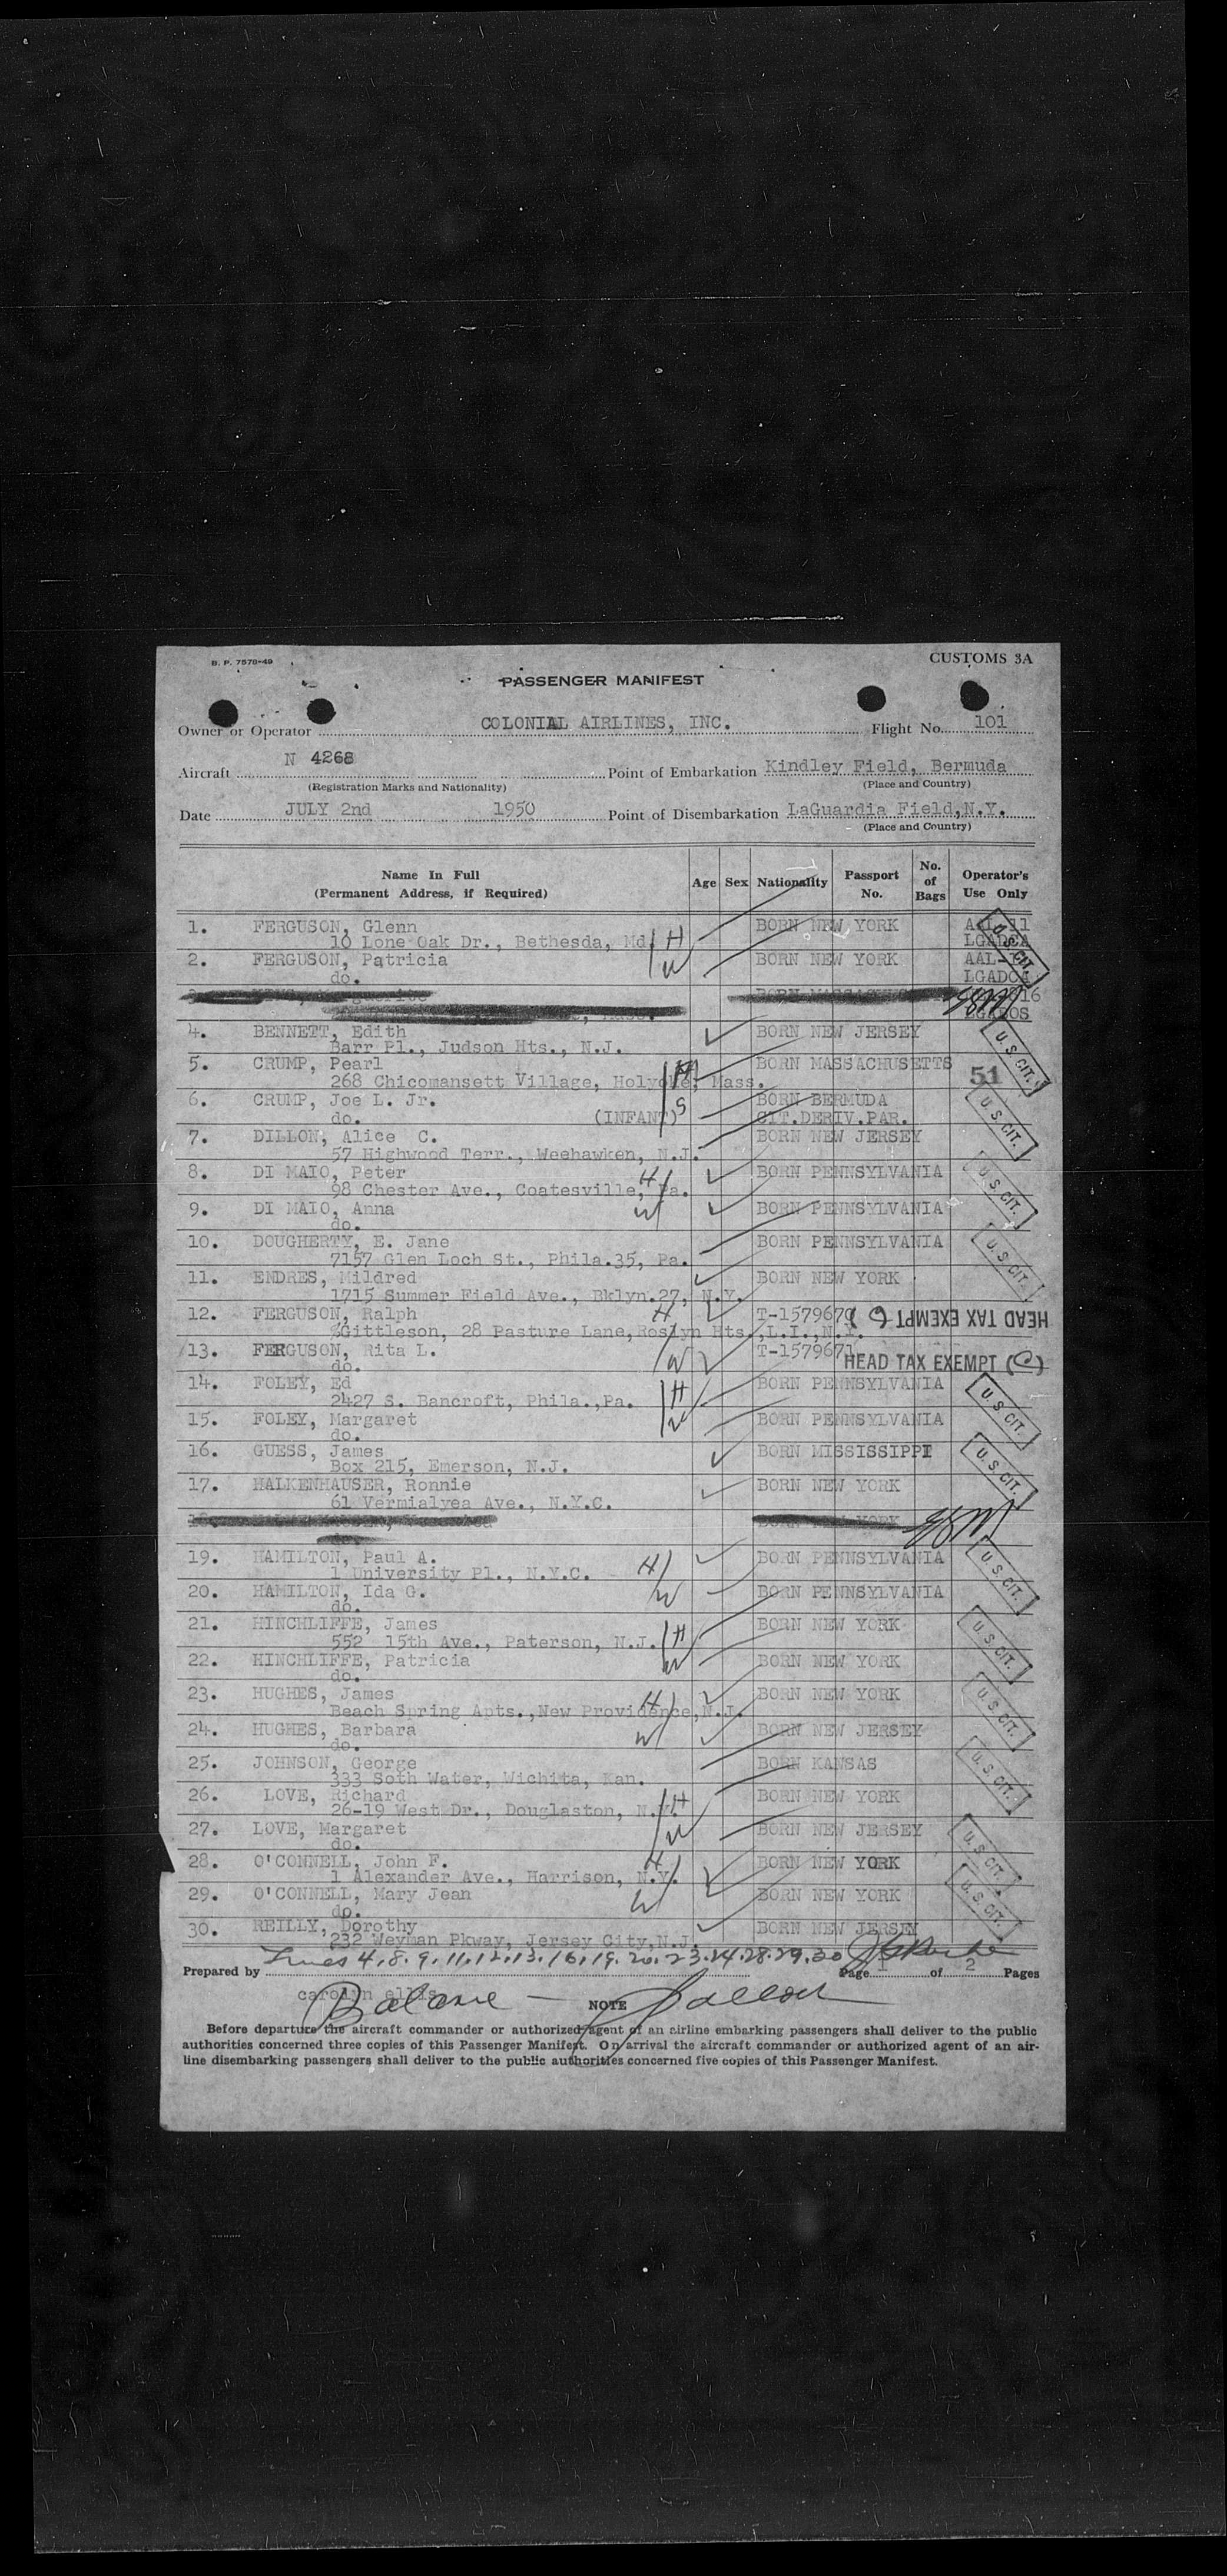 B. P. 7578-49
CUSTOMS 3A
PASSENGER MANIFEST
Owner or Operator COLONIAL AIRLINES, INC. Flight No. 101
Aircraft N 4268 Point of Embarkation Kindley Field, Bermuda
(Registration Marks and Nationality) (Place and Country)
Date JULY 2nd 1950 Point of Disembarkation LaGuardia Field,N.Y.
(Place and Country)
Name In Full (Permanent Address, if Required) Age Sex Nationality Passport No. No. of Bags Operator's Use Only
1. FERGUSON, Glenn BORN NEW YORK
10 Lone Oak Dr., Bethesda, Md H LGADCA
2. FERGUSON, Patricia W BORN NEW YORK AAL-
do. LGADCA
U.S. CIT.
4. BENNETT, Edith BORN NEW JERSEY
Barr Pl., Judson Hts., N.J.
U.S. CIT.
5. CRUMP, Pearl BORN MASSACHUSETTS
268 Chicomansett Village, Holyoke, Mass. 51
6. CRUMP, Joe L. Jr. S BORN BERMUDA
do. (INFANT) CIT.DERIV.PAR.
U.S. CIT.
7. DILLON, Alice C. BORN NEW JERSEY
57 Highwood Terr., Weehawken, N.J.
8. DI MAIO, Peter H BORN PENNSYLVANIA
98 Chester Ave., Coatesville, Pa.
U.S. CIT.
9. DI MAIO, Anna W BORN PENNSYLVANIA
do.
10. DOUGHERTY, E. Jane BORN PENNSYLVANIA
7157 Glen Loch St., Phila.35, Pa.
U.S. CIT.
11. ENDRES, Mildred BORN NEW YORK
1715 Summer Field Ave., Bklyn.27, N.Y.
12. FERGUSON, Ralph H T-1579670 HEAD TAX EXEMPT (C)
%Gittleson, 28 Pasture Lane,Roslyn Hts.,L.I.,N.Y.
13. FERGUSON, Rita L. W T-1579671 HEAD TAX EXEMPT (C)
do.
14. FOLEY, Ed H BORN PENNSYLVANIA
2427 S. Bancroft, Phila.,Pa.
U.S. CIT.
15. FOLEY, Margaret W BORN PENNSYLVANIA
do.
16. GUESS, James BORN MISSISSIPPI
Box 215, Emerson, N.J.
U.S. CIT.
17. HALKENHAUSER, Ronnie BORN NEW YORK
61 Vermialyea Ave., N.Y.C.
19. HAMILTON, Paul A. H BORN PENNSYLVANIA
1 University Pl., N.Y.C.
U.S. CIT.
20. HAMILTON, Ida G. W BORN PENNSYLVANIA
do.
21. HINCHLIFFE, James H BORN NEW YORK
552 15th Ave., Paterson, N.J.
U.S. CIT.
22. HINCHLIFFE, Patricia W BORN NEW YORK
do.
23. HUGHES, James H BORN NEW YORK
Beach Spring Apts.,New Providence,N.J.
U.S. CIT.
24. HUGHES, Barbara W BORN NEW JERSEY
do.
25. JOHNSON, George BORN KANSAS
333 Soth Water, Wichita, Kan.
U.S. CIT.
26. LOVE, Richard H BORN NEW YORK
26-19 West Dr., Douglaston, N.Y.
27. LOVE, Margaret W BORN NEW JERSEY
do.
U.S. CIT.
28. O'CONNELL, John F. H BORN NEW YORK
1 Alexander Ave., Harrison, N.Y.
U.S. CIT.
29. O'CONNELL, Mary Jean W BORN NEW YORK
do.
30. REILLY, Dorothy BORN NEW JERSEY
232 Weyman Pkway, Jersey City,N.J.
Lines 4,8.9.11,12,13.16,19.20.23.24.28.29.30
Prepared by Page 1 of 2 Pages
carolyn ellis
Balance
NOTE
Before departure the aircraft commander or authorized agent of an airline embarking passengers shall deliver to the public
authorities concerned three copies of this Passenger Manifest. On arrival the aircraft commander or authorized agent of an air-
line disembarking passengers shall deliver to the public authorities concerned five copies of this Passenger Manifest.